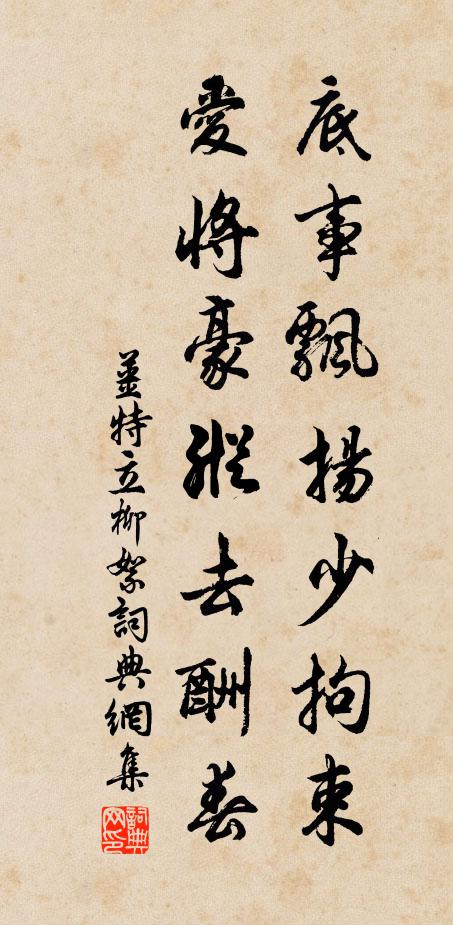 底事飄揚少拘束
愛將豪縱去酬春
姜特立柳絮詞典網集
詞典網印